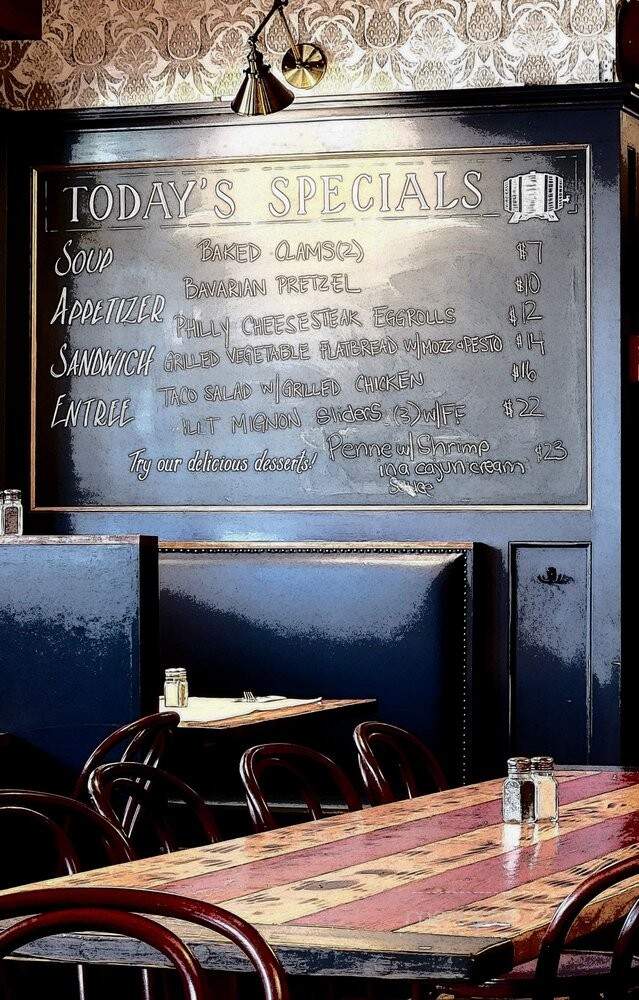 TODAY'S SPECIALS
SOUP BAKED CLAMS(2) $7
BAVARIAN PRETZEL $10
APPETIZER PHILLY CHEESESTEAK EGGROLLS $12
SANDWICH GRILLED VEGETABLE FLATBREAD W/MOZZ & PESTO $14
TACO SALAD W/GRILLED CHICKEN $16
ENTREE MIGNON Sliders (3) W/FF $22
Penne w/ Shrimp $23
Try our delicious desserts! in a cajun cream
Sauce